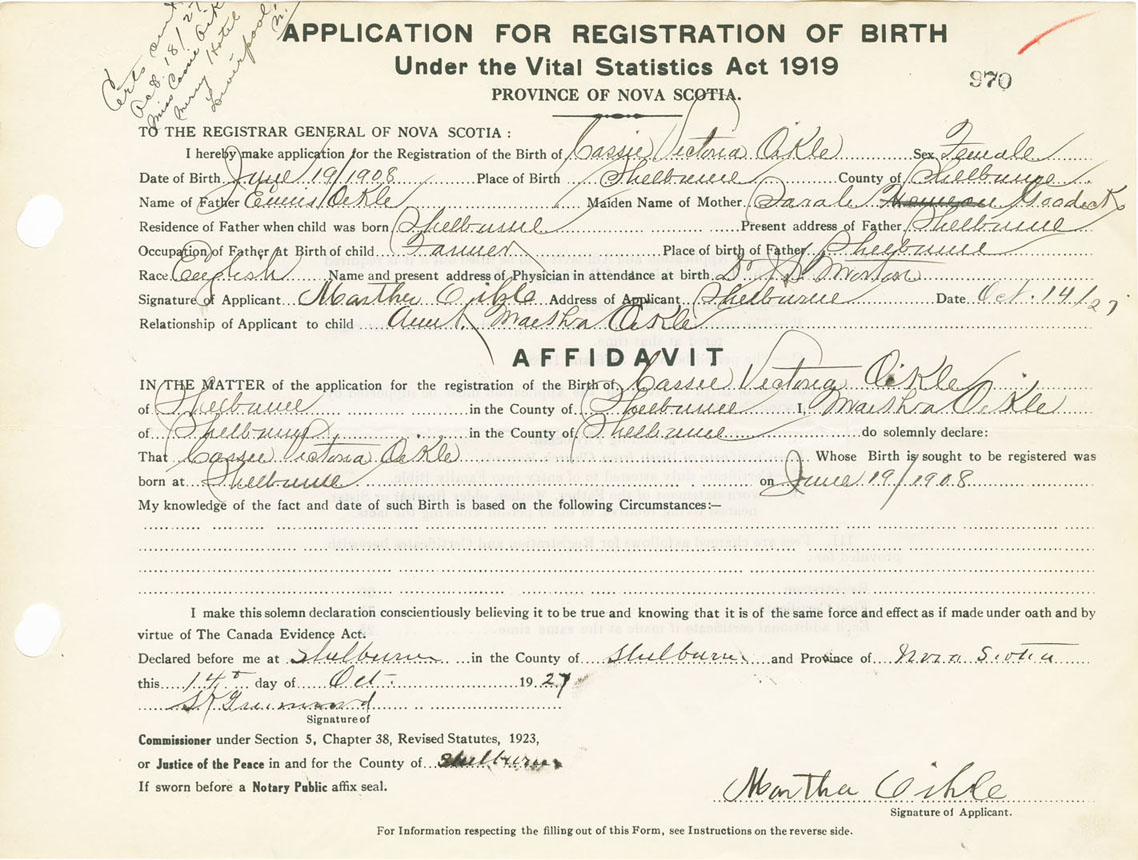 Oct. 18/27
Miss Cassie Oikle
Hotel
Liverpool,
APPLICATION FOR REGISTRATION OF BIRTH
Under the Vital Statistics Act 1919
970
PROVINCE OF NOVA SCOTIA.
TO THE REGISTRAR GENERAL OF NOVA SCOTIA :
I hereby make application for the Registration of the Birth of Cassie Victoria Oikle Sex Female
Date of Birth June 19/1908 Place of Birth Shelburne County of Shelburne
Name of Father Oikle Maiden Name of Mother Sarah
Residence of Father when child was born Shelburne Present address of Father Shelburne
Occupation of Father at Birth of child Farmer Place of birth of Father Shelburne
Race English Name and present address of Physician in attendance at birth Dr Morton
Signature of Applicant Martha Oikle Address of Applicant Shelburne Date Oct. 14/27
Relationship of Applicant to child Aunt. Martha Oikle
AFFIDAVIT
IN THE MATTER of the application for the registration of the Birth of Cassie Victoria Oikle
of Shelburne in the County of Shelburne I, Martha Oikle
of Shelburne in the County of Shelburne do solemnly declare:
That Cassie Victoria Oikle Whose Birth is sought to be registered was
born at Shelburne on June 19/1908
My knowledge of the fact and date of such Birth is based on the following Circumstances:—
I make this solemn declaration conscientiously believing it to be true and knowing that it is of the same force and effect as if made under oath and by
virtue of The Canada Evidence Act.
Declared before me at Shelburne in the County of Shelburne and Province of Nova Scotia
this 14th day of Oct. 1927
Signature of
Commissioner under Section 5, Chapter 38, Revised Statutes, 1923,
or Justice of the Peace in and for the County of Shelburne
If sworn before a Notary Public affix seal.
Martha Oikle
Signature of Applicant.
For Information respecting the filling out of this Form, see Instructions on the reverse side.